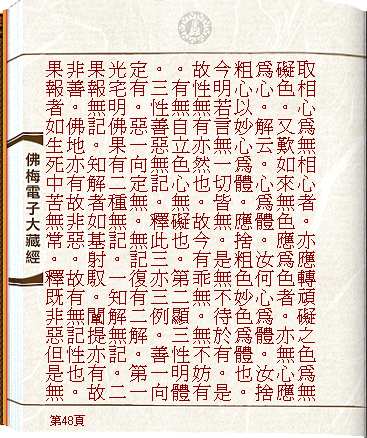 取相心爲無相心者。亦應轉頑礙之色爲無
礙色。又歎如來無色應無色者。亦無心應
爲心。解云。心爲體。捨汝何心爲體。汝捨
粗心以妙心爲體。應捨粗色妙色爲體也。
今明若言無。一切皆無。是無不待於無
故性無有亦然也。故今有乖無
。有性自立色心無礙也。第二例顯三性明體
。三性善惡無記。釋此三
定。惡一向定無記。記復有二解。第一
光宅明佛果有二種無記。一知解無記。二
果報無記。知解者如基射馭。闡提亦有。故
非善。佛地亦有故非惡。故有無記性也。
果報者如生死中苦無常。釋既非惡但是無
佛梅電子大藏經
第48頁